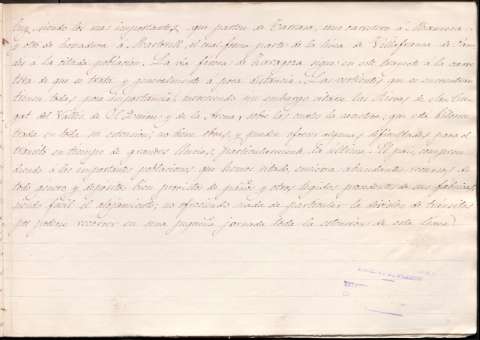 siendo los mas importantes, que parten de Tarrasa, una carretera á Manresa
y otro de herradura á Martorell, el cual forma parte de la linea de Villafranca de Pana-
dés a la citada poblacion. La via ferrea de Zaragoza sigue en este trayecto á la carre-
tera de que se trata y generalmente á poca distancia. Las vertientes que se encuentran
tienen todas poca importancia, mereciendo sin embargo citarse las Rieras de San Cu-
gat del Vallés de y de la Arena, sobre las cuales la carretera, que está
en toda su estension, no tiene obras, y pueden ofrecer algunas dificultades para el
tránsito en tiempo de grandes lluvias, particularmente la última. El pais, compren-
diendo á las importantes poblaciones que hemos citado, abundantes recursos de
todo genero y depositos bien provistos de paños y otros tegidos procedentes de sus fabricas,
siendo facil el alojamiento, no ofreciendo nada de particular la division de transitos
por poderse recorrer en una pequeña jornada toda la estension de esta linea.